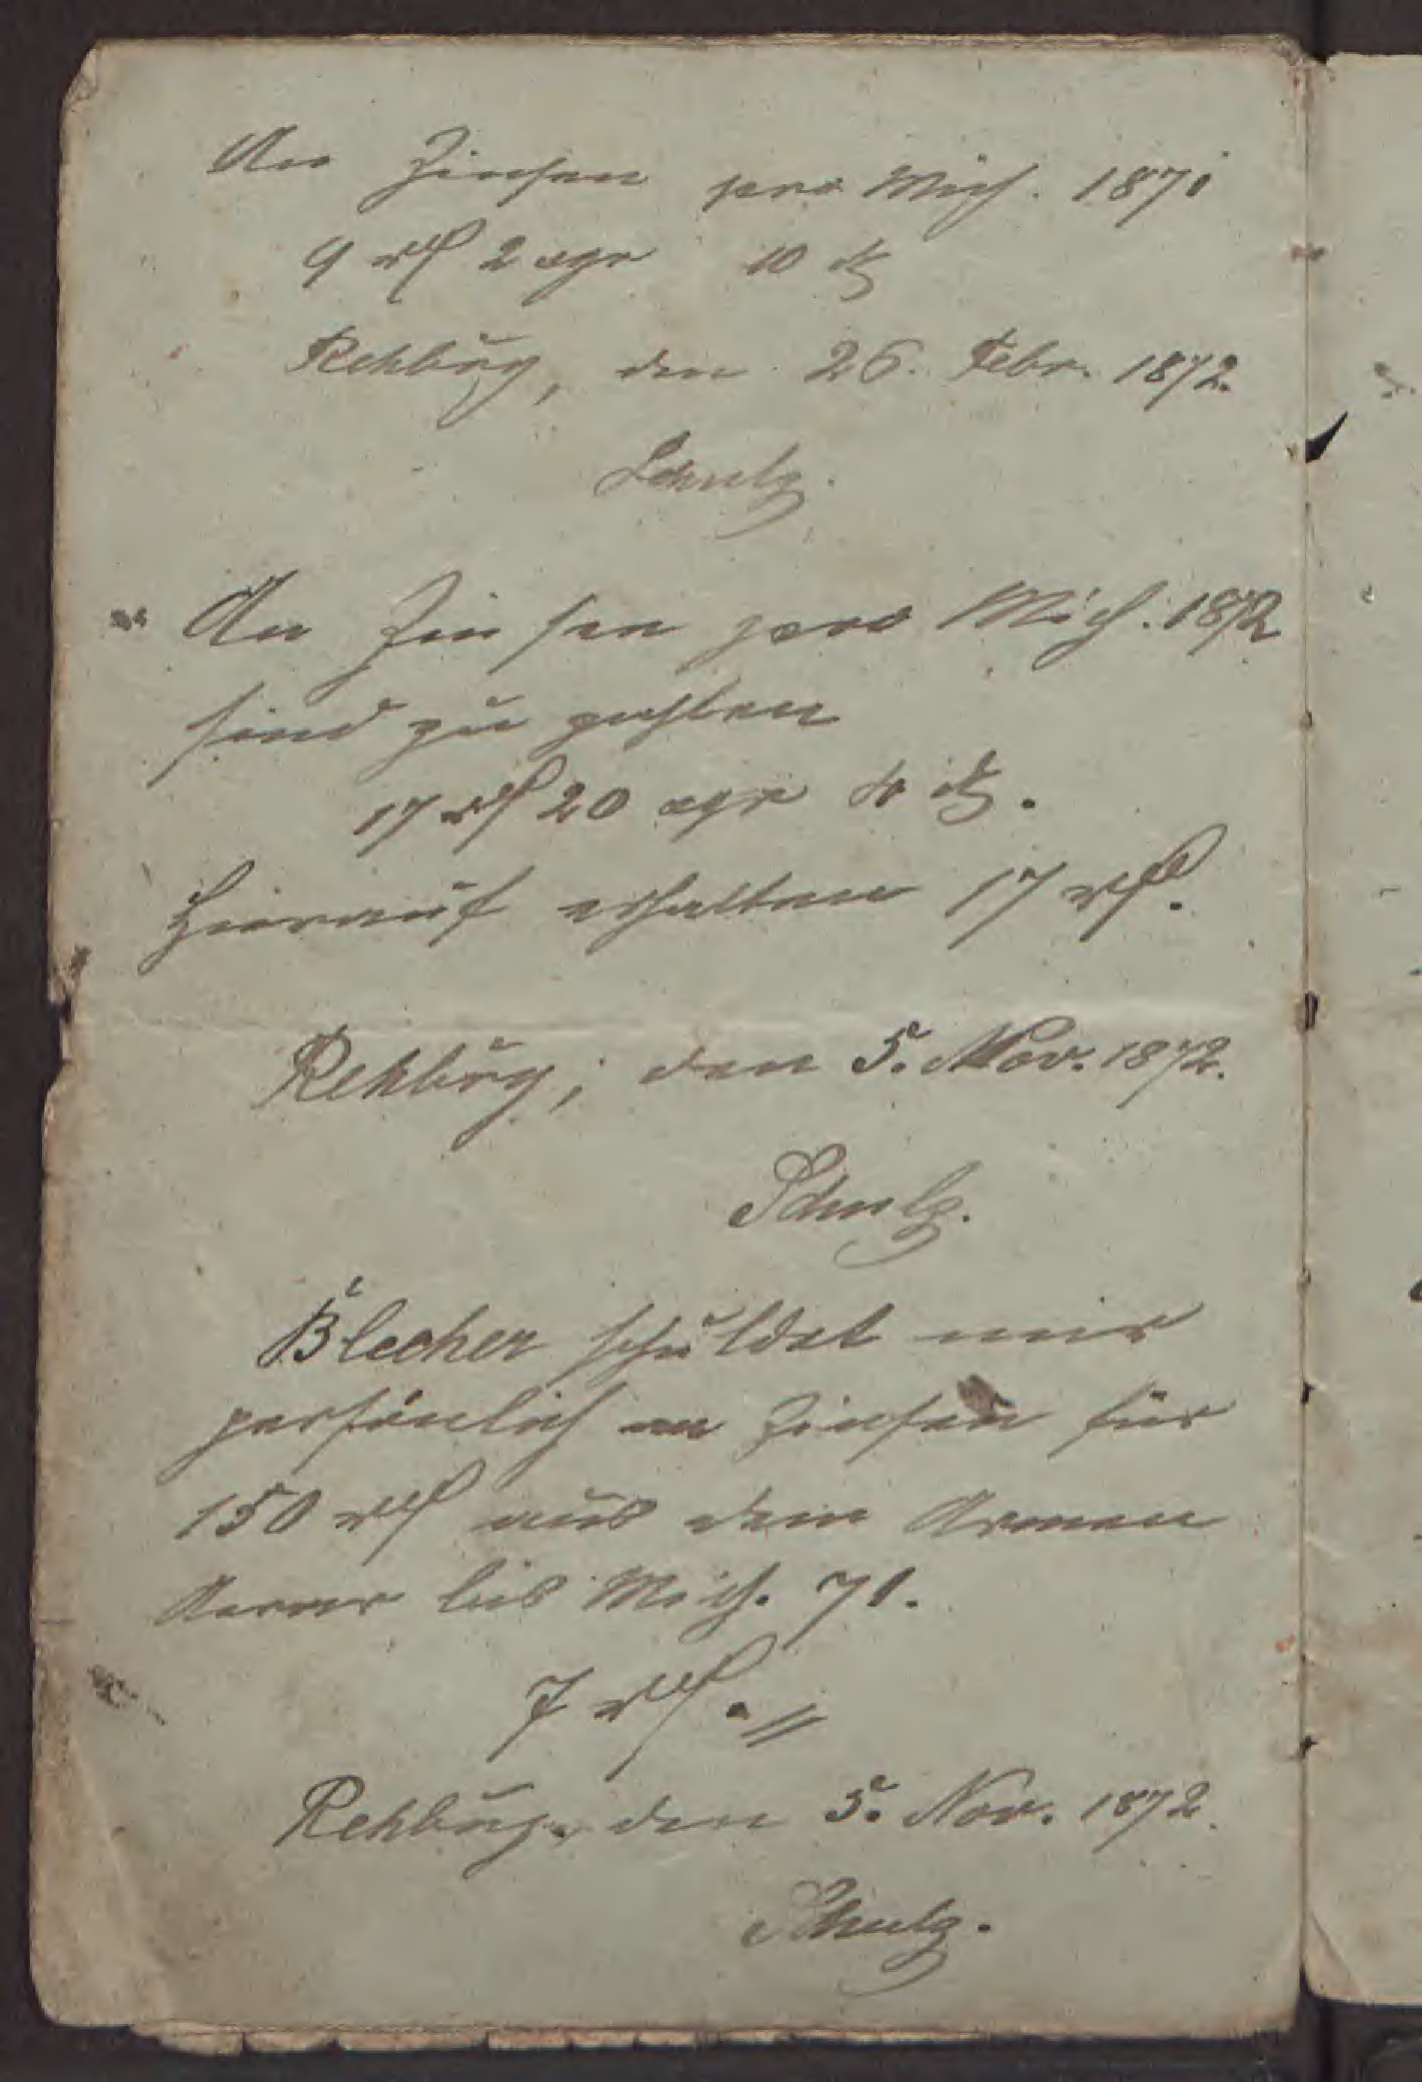 An Zinsen pro Mich. 1871
9 rℓ 2 sgr 10 ₰
Rehburg, den 26. Febr. 1872.
Schulz.
An Zinsen pro Mich. 1872
sind zu zahlen
17 rℓ 20 sgr 4 ₰.
Hierauf erhalten 17 rℓ.
Rehburg, den 5. Nov. 1872.
Schulz.
Blecher schuldet mir
persönlich an Zinsen für
150 rℓ aus dem Armen
bis Mich. 71.
7 rℓ. //
Rehburg, den 5. Nov. 1872.
Schulz.